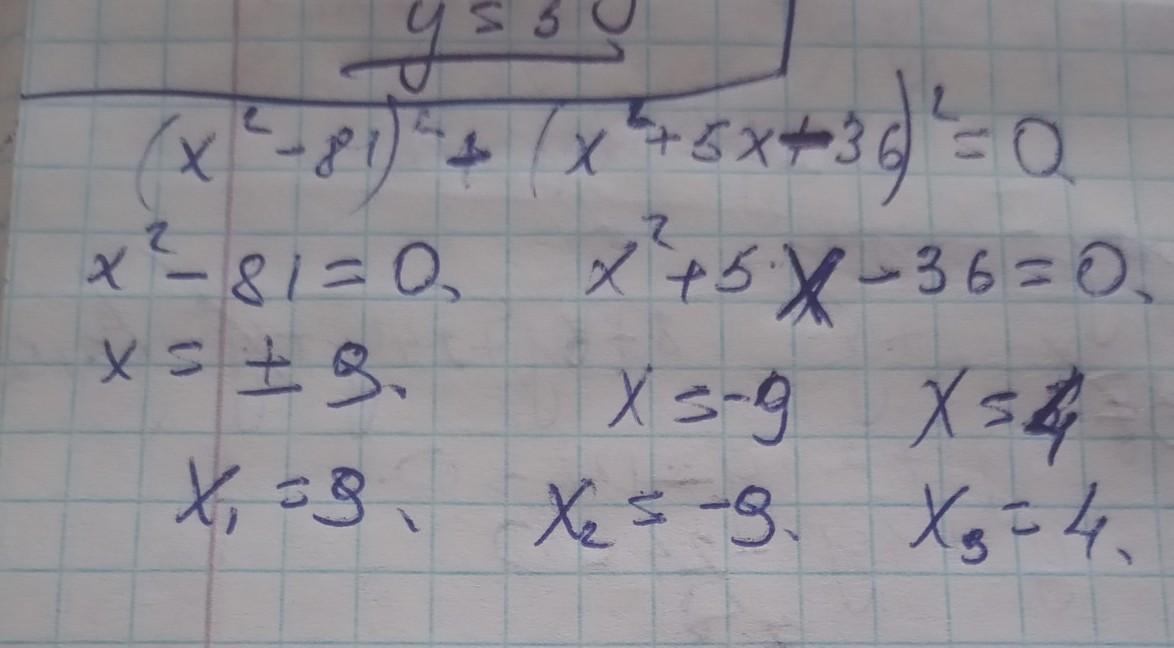 (x² - 81)² + (x² + 5x - 36)² = 0
x² - 81 = 0, x² + 5x - 36 = 0,
x = ± 9, x = -9 x = 4
x₁ = 9, x₂ = -9, x₃ = 4,